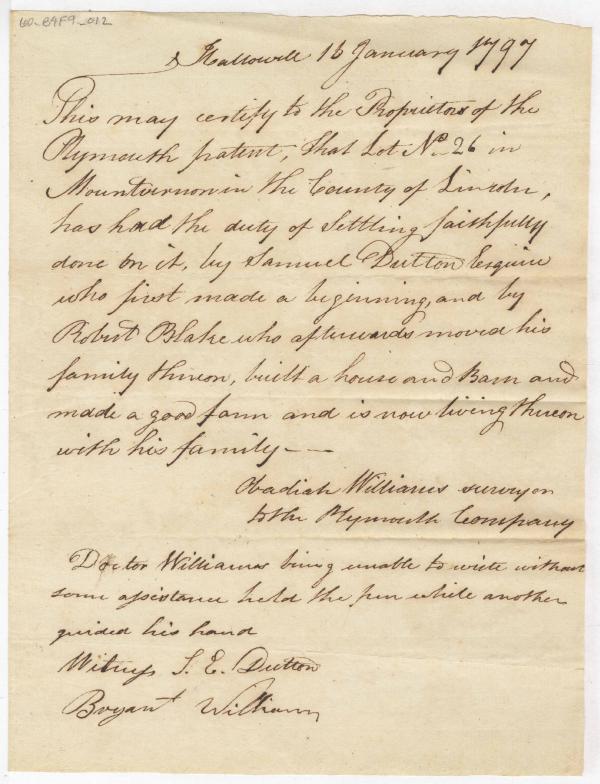 60-B4F9-012
Hallowell 16 January 1797
This may certify to the Proprietors of the
Plymouth patent, that Lot No. 26 in
Mountvernon in the County of Lincoln,
has had the duty of Settling faithfully
done on it, by Samuel Dutton Esquire
who first made a beginning, and by
Robert Blake who afterwards moved his
family thereon, built a house and Barn and
made a good farm and is now living thereon
with his family - -
Obadiah Williams surveyor
to the Plymouth Company
Doctor Williams being unable to write without
some assistance held the pen while another
guided his hand
Witness S. E. Dutton
Bryant Williams